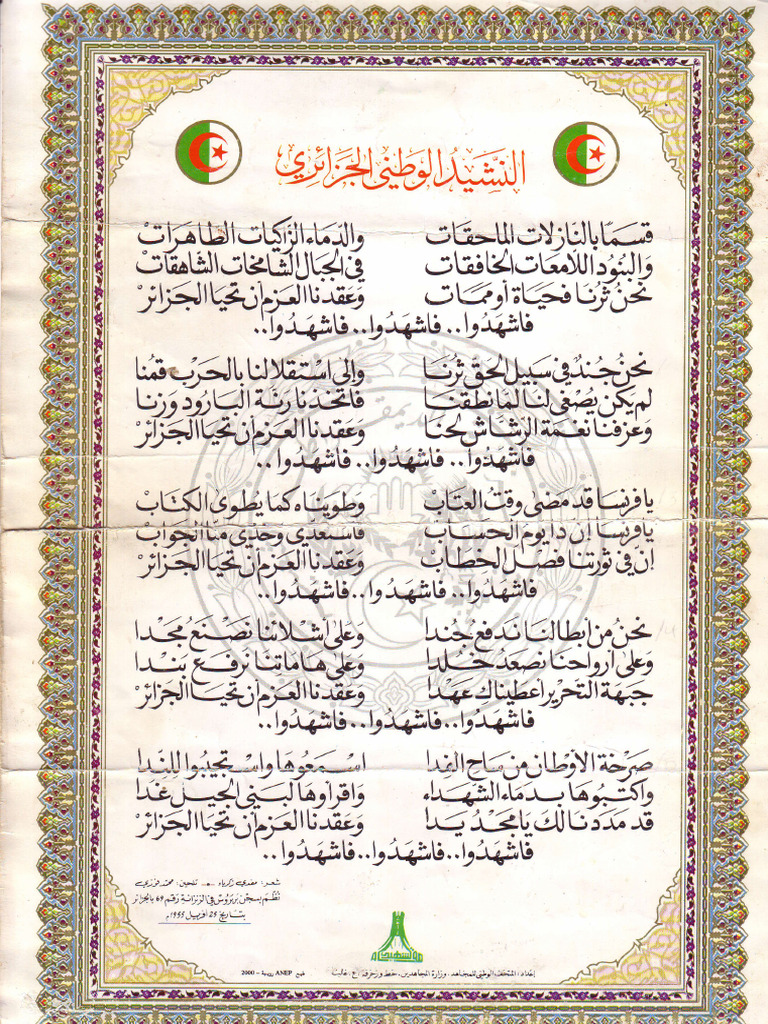 النَشِيدُ الوَطَنِي الجَزَائِرِي
قسَمًا بالنَّازلات الماحقَات والدّماء الزّاكيَات الطاهرَات
وَالبنُود اللاّمعَات الخَافقَات في الجبَال الشامخَات الشاهقَات
نحنُ ثرْنَا فحيَاة أو ممَات وعَقدنا العَزم أن تحيَا الجَزائرْ
فاشهَدُوا.. فاشهَدُوا.. فاشهَدُوا..
نحنُ جُندٌ في سَبيل الحَقّ ثرْنَا وإلى اسْتقلالنا بالحَرْب قمْنا
لم يكن يُصْغى لنا لمَا نطقنَا فاتخذنا رنّة البَارُود وَزنا
وعزفنا نغمَة الرشاش لحْنا وَعَقدنا العَزم أن تحيَا الجَزائرْ
فاشهَدُوا.. فاشهَدُوا.. فاشهَدُوا..
يا فرنسَا قد مَضى وقت العتَابْ وَطويْنَاه كما يُطوى الكتَابْ
يا فرنسَا إن ذا يومُ الحسَابْ فاسْتعدّي وخذي منّا الجوَابْ
إنّ في ثورَتنا فصْل الخطابْ وَعَقدنا العَزم أن تحيَا الجَزائرْ
فاشهَدُوا.. فاشهَدُوا.. فاشهَدُوا..
نحنُ من أبطالنَا ندفعُ جُندا وَعَلى أشلائنا نصْنَعُ مجدا
وَعَلى أرواحنا نصْعَدُ خُلدا وَعَلى هَامَاتنا نرفَع بَندا
جبهَة التحْرير أعطينَاك عَهدا وَعَقدنا العَزم أن تحيَا الجَزائرْ
فاشهَدُوا.. فاشهَدُوا.. فاشهَدُوا..
صَرخة الأوْطان من سَاح الفدا اسْمَعُوهَا وَاسْتجيبُوا للندَا
وَاكتبُوهَا بدمَاء الشهدَاء وَاقرَأوهَا لبَني الجيل غَدا
قد مَدَدنا لكَ يا مجدُ يَدا وَعَقدنا العَزم أن تحيَا الجَزائرْ
فاشهَدُوا.. فاشهَدُوا.. فاشهَدُوا..
شعر: مفدي زكرياء - تلحين: محمد فوزي
نُظم بسجن بربروس في الزنزانة رقم 69 بالجزائر
بتاريخ 25 أفريل 1955م
إعداد: المتحف الوطني للمجاهد. وزارة المجاهدين. خط وزخرفة: ع. غالب طبع ANEP رويبة - 2000